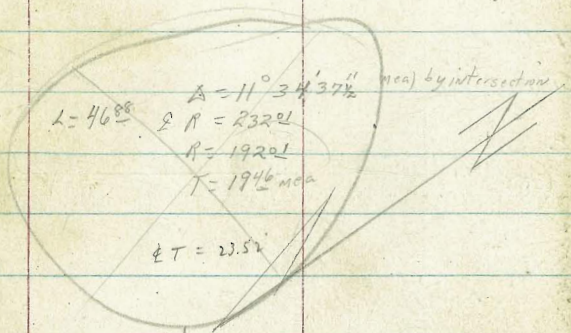 Δ = 11° 34' 37½" mea) by intersection
L = 46 88 ℄ R = 232 01
R = 192 01
T = 19 46 mea
℄ T = 23.52